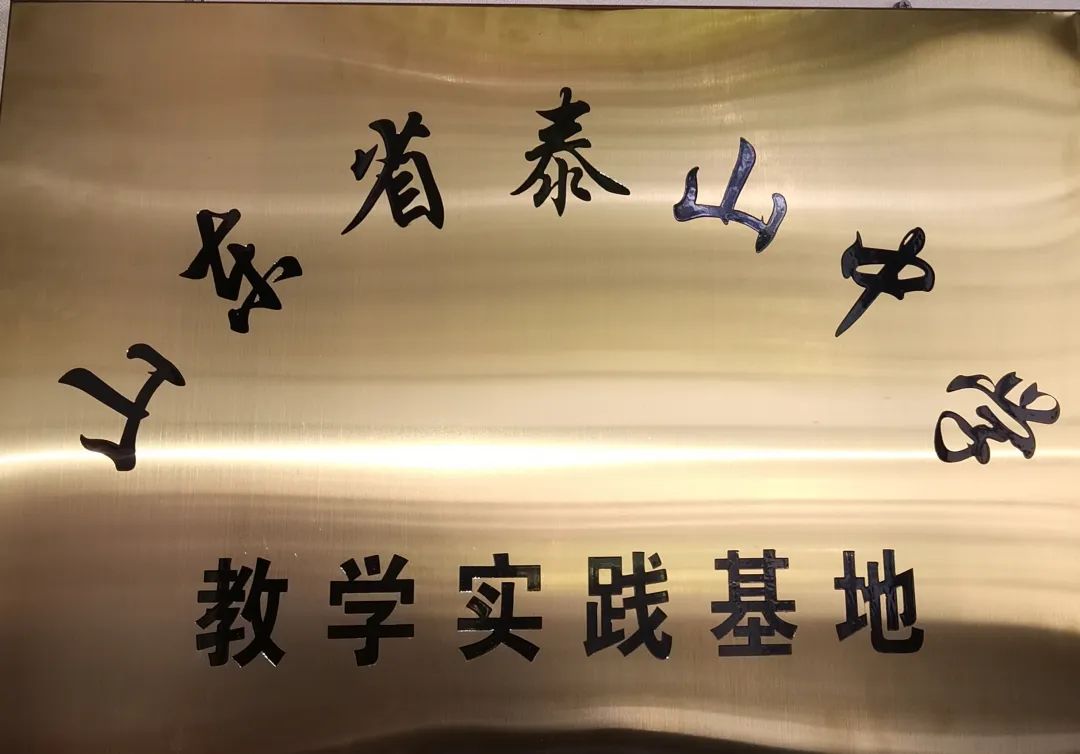 山东省泰山中学
教学实践基地